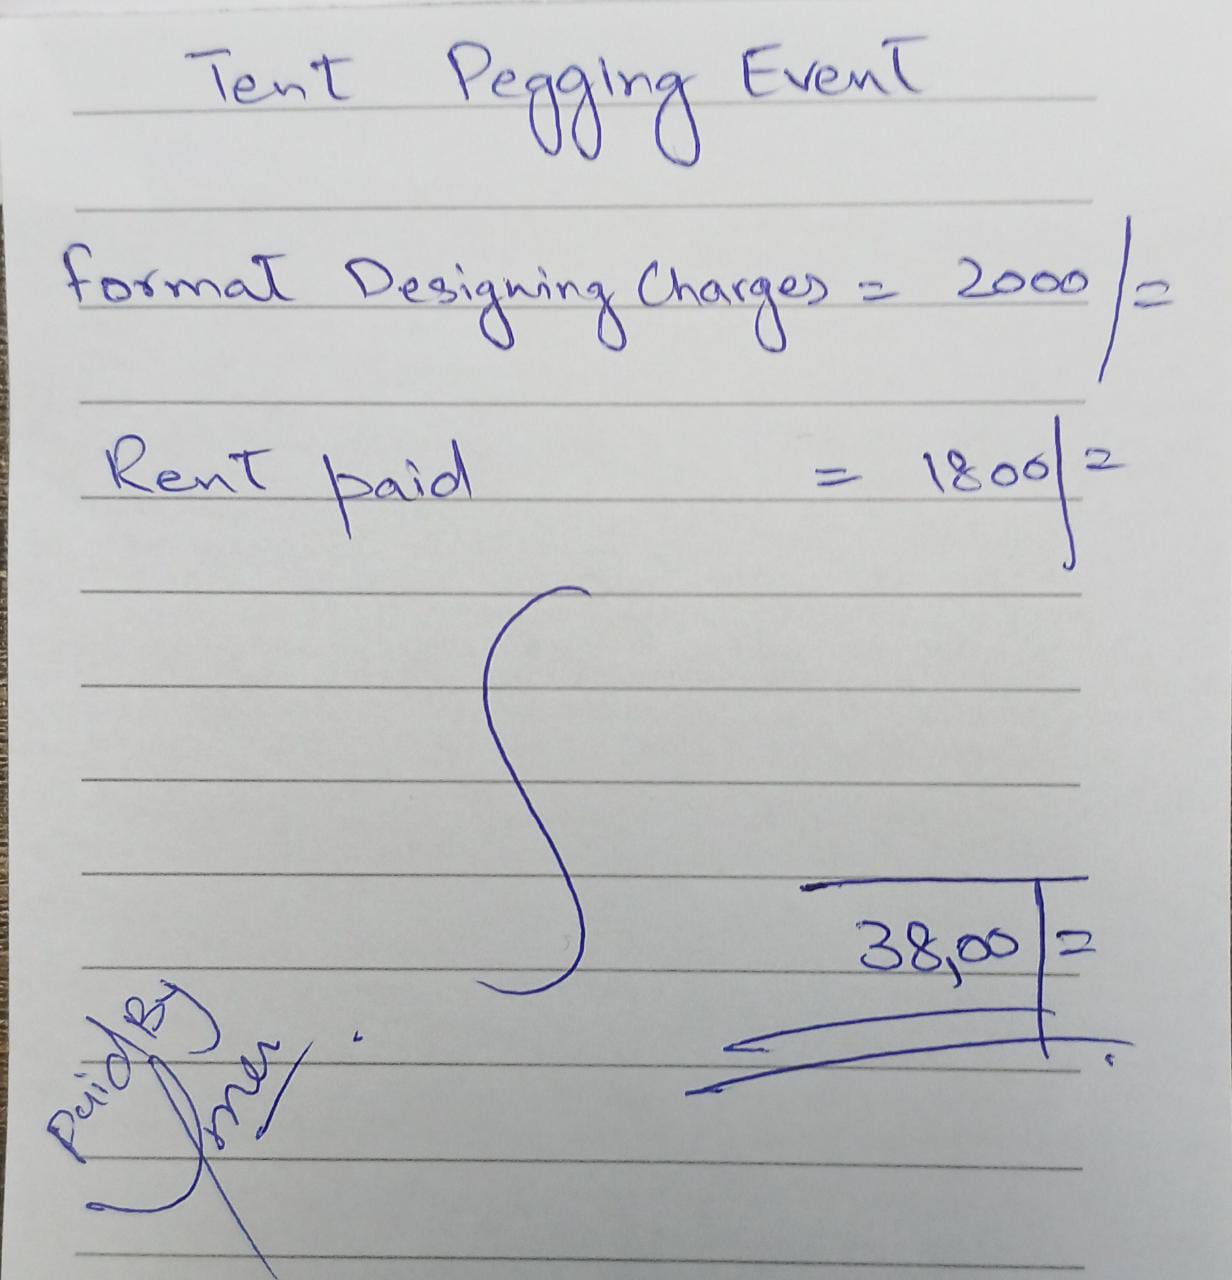 Tent Pegging Event
Format Designing Charges = 2000/=
Rent paid = 1800/=
38,00/=
Paid By